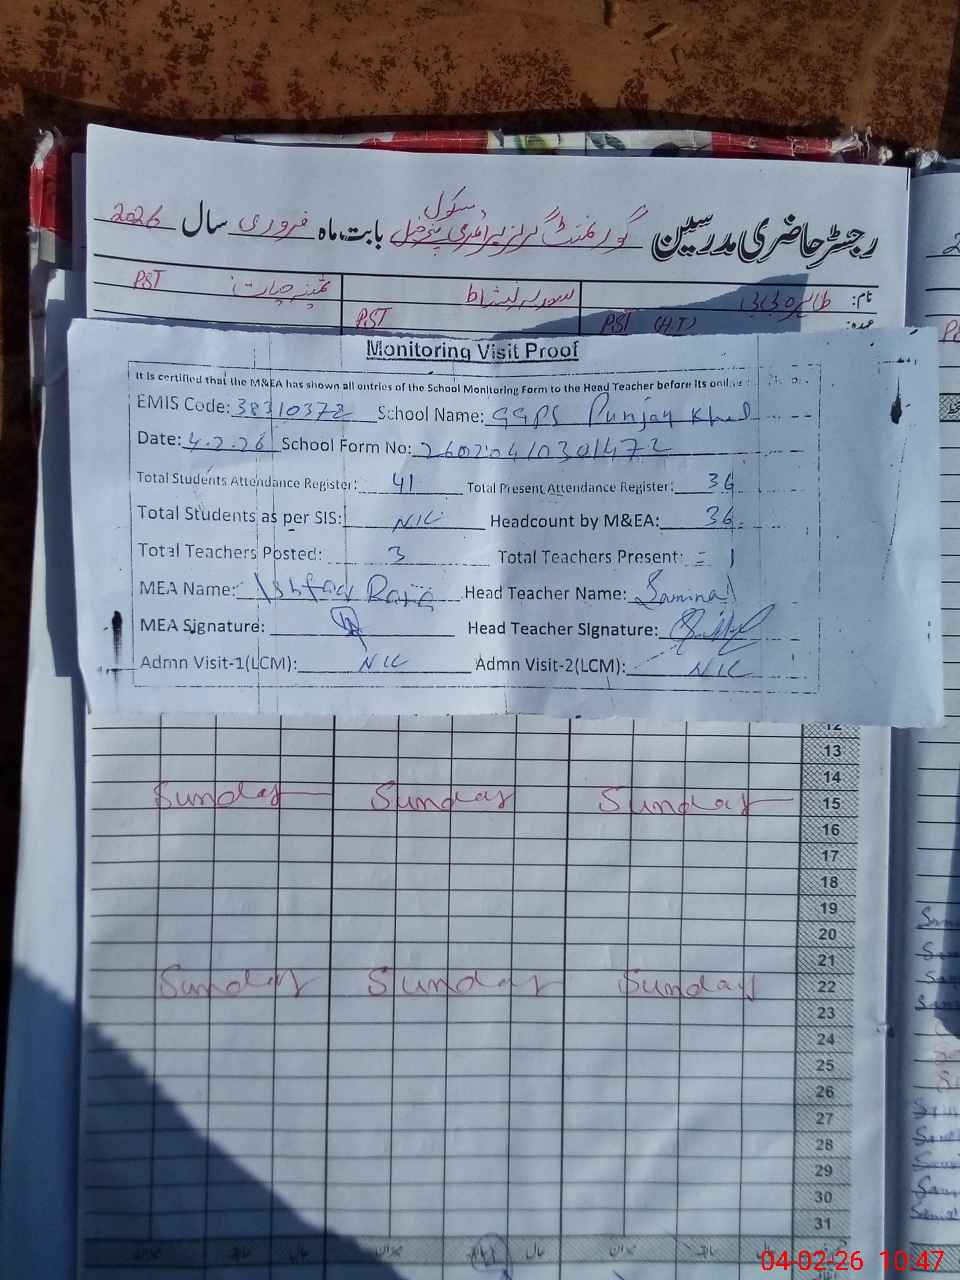 رجسٹر حاضری مدرسین گورنمنٹ گرلز پرائمری سکول پنجڑ خیل بابت ماہ فروری سال 2026
نام: طاہرہ بی بی سویرہ نشاط
PST (H.T) PST PST
Monitoring Visit Proof
It is certified that the M&EA has shown all entries of the School Monitoring Form to the Head Teacher before its
EMIS Code: 38310372 School Name: GGPS Punjay Khel
Date: 4.2.26 School Form No: 26020410301472
Total Students Attendance Register: 41 Total Present Attendance Register: 36
Total Students as per SIS: NIL Headcount by M&EA: 36
Total Teachers Posted: 3 Total Teachers Present: = 1
MEA Name: Ishfaq Raza Head Teacher Name: Samina
MEA Signature: Head Teacher Signature:
Admn Visit-1(LCM): NIL Admn Visit-2(LCM): NIL
12
13
14
Sunday Sunday Sunday 15
16
17
18
19
20
21
Sunday Sunday Sunday 22
23
24
25
26
27
28
29
30
31
میزان سابقہ حال میزان حال میزان سابقہ حال
04-02-26 10:47